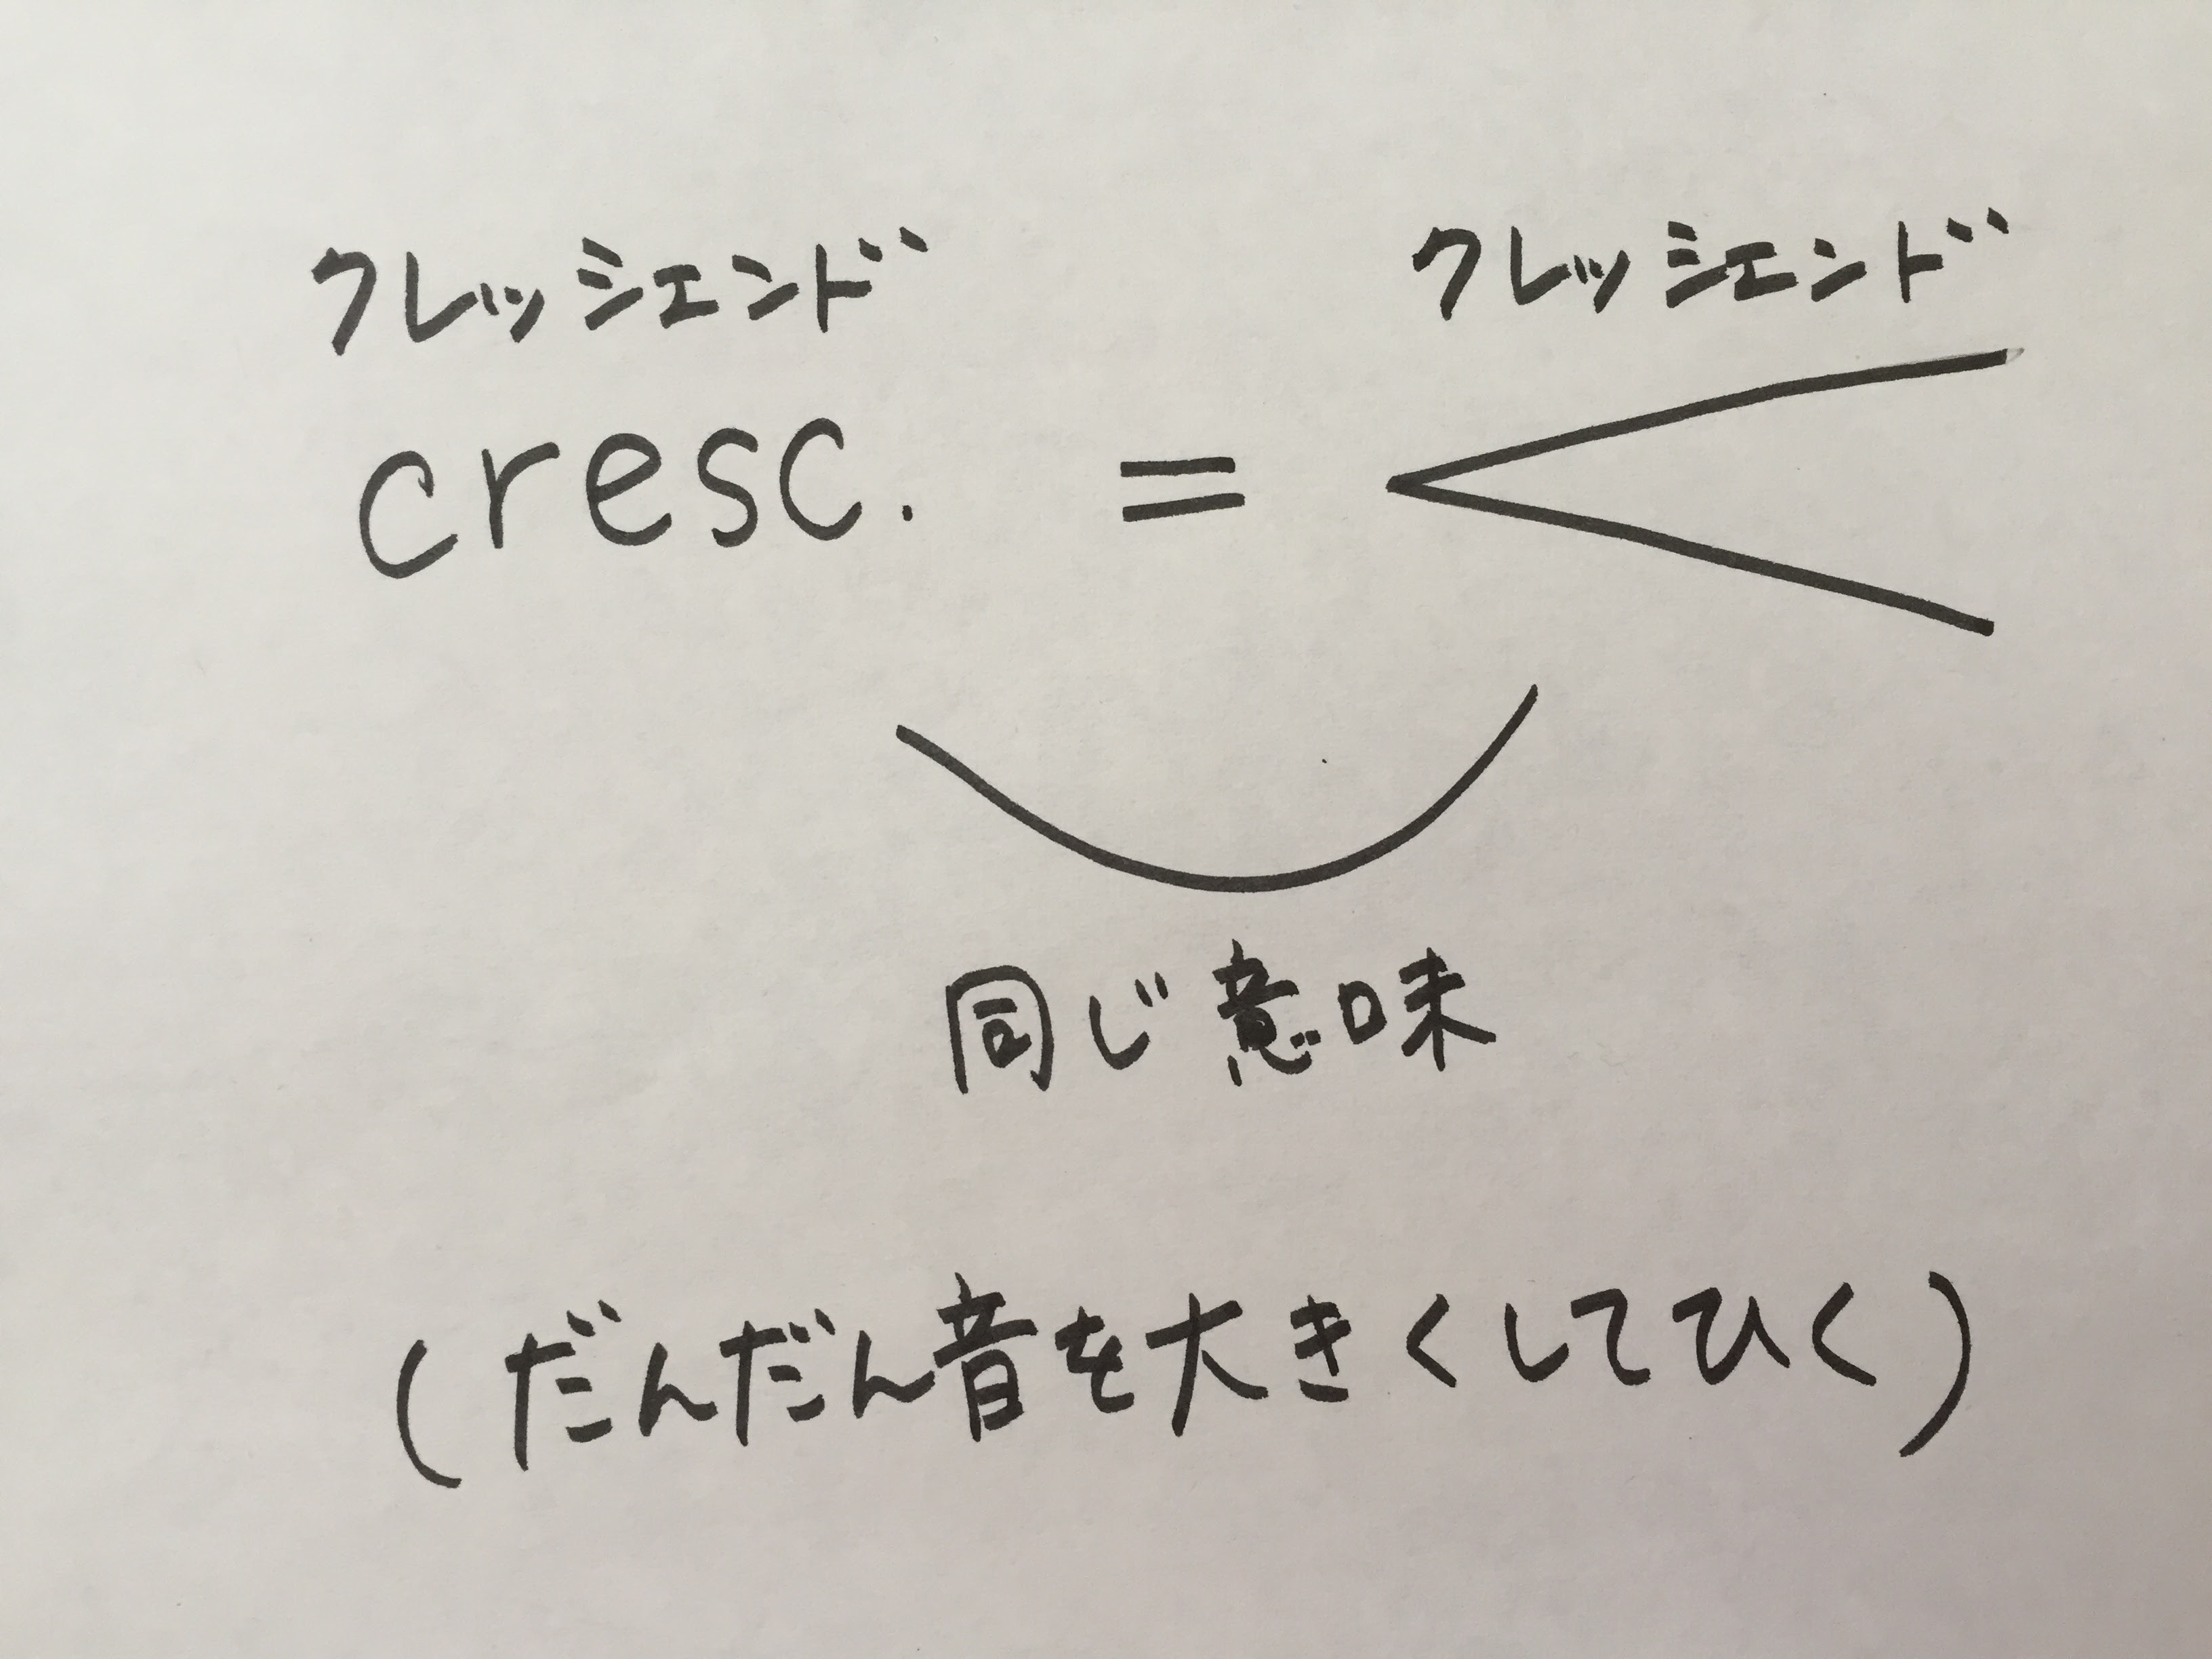 クレッシェンド クレッシェンド
cresc. = <
同じ意味
(だんだん音を大きくしてひく)